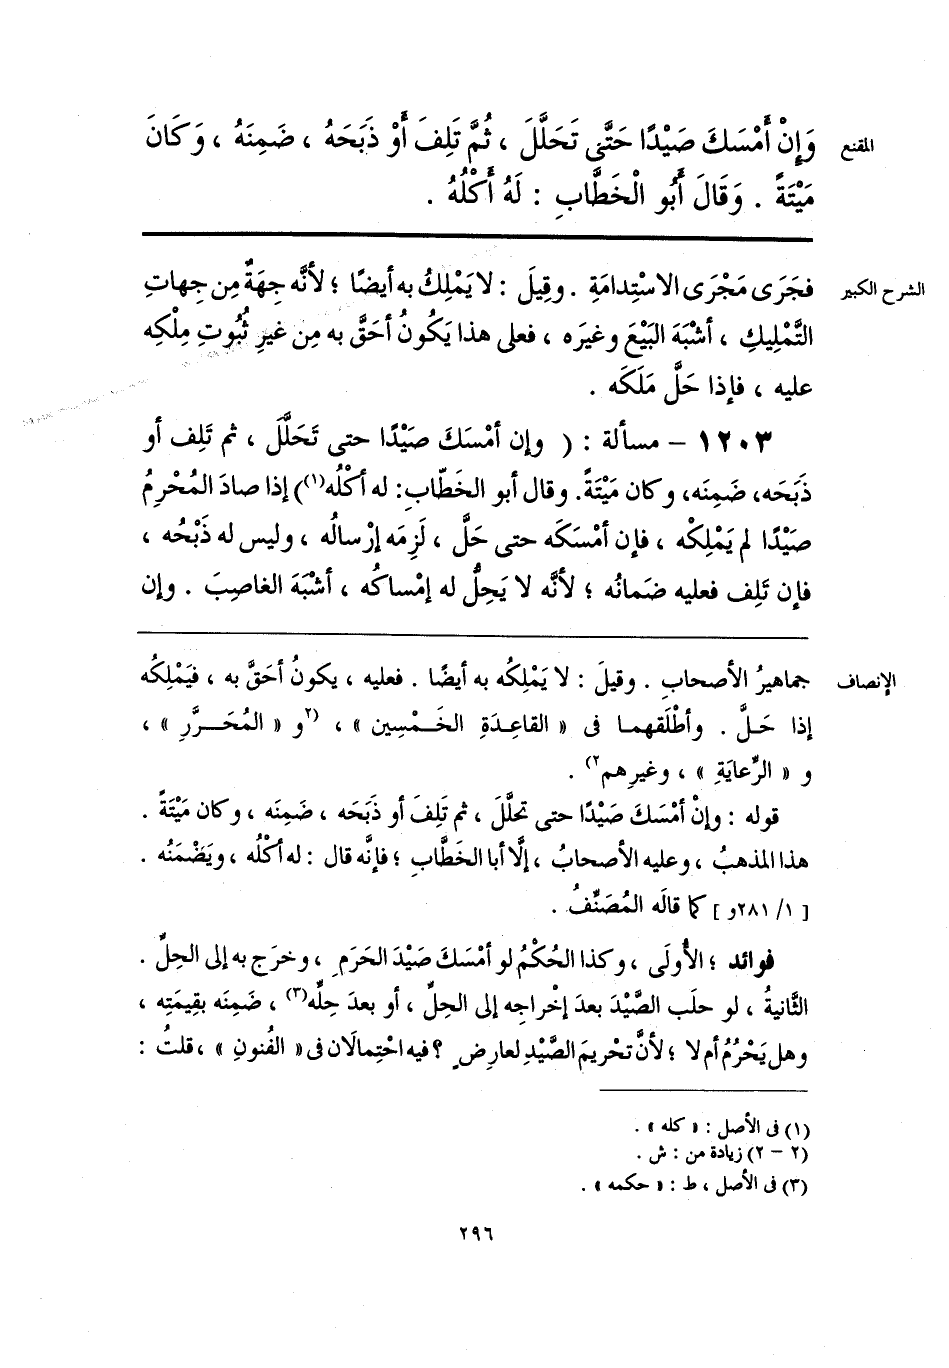 المقنع
وَإِنْ أَمْسَكَ صَيْدًا حَتَّى تَحَلَّلَ ، ثُمَّ تَلِفَ أَوْ ذَبَحَهُ ، ضَمِنَهُ ، وَكَانَ
مَيْتَةً . وَقَالَ أَبُو الْخَطَّابِ : لَهُ أَكْلُهُ .
الشرح الكبير
فجَرَى مَجْرَى الاسْتِدامَةِ . وقِيلَ : لا يَمْلِكُ به أيضًا ؛ لأنَّه جِهَةٌ مِن جِهاتِ
التَّمْلِيكِ ، أشْبَهَ البَيْعَ وغيرَه ، فعلى هذا يَكُونُ أحَقَّ به مِن غيرِ ثُبُوتِ مِلْكِه
عليه ، فإذا حَلَّ مَلَكَه .
١٢٠٣ – مسألة : ( وإن أمْسَكَ صَيْدًا حتى تَحَلَّلَ ، ثم تَلِف أو
ذَبَحَه، ضَمِنَه، وكان مَيْتَةً. وقال أبو الخَطّابِ: له أكْلُه(١)) إذا صادَ المُحْرِمُ
صَيْدًا لم يَمْلِكْه ، فإن أمْسَكَه حتى حَلَّ ، لَزِمَه إرْسالُه ، وليس له ذَبْحُه ،
فإن تَلِف فعليه ضَمانُه ؛ لأنَّه لا يَحِلُّ له إمْساكُه ، أشْبَهَ الغاصِبَ . وإن
الإنصاف
جماهيرُ الأصحابِ . وقيلَ : لا يَمْلِكُه به أيضًا . فعليه ، يكونُ أحَقَّ به ، فيَمْلِكُه
إذا حَلَّ . وأطْلَقهما فى « القاعِدَةِ الخَمْسِين » ، (٢و « المُحَرَّرِ » ،
و « الرِّعايَةِ » ، وغيرِهم٢) .
قوله : وإنْ أمْسَكَ صَيْدًا حتى تحلَّلَ ، ثم تَلِفَ أو ذَبَحَه ، ضَمِنَه ، وكان مَيْتَةً .
هذا المذهبُ ، وعليه الأصحابُ ، إلَّا أبا الخَطَّابِ ؛ فإنَّه قال : له أكْلُه ، ويَضْمَنُه .
[ ١/ ٢٨١و ] كما قالَه المُصَنِّفُ .
فوائد ؛ الأُولَى ، وكذا الحُكْمُ لو أمْسَكَ صَيْدَ الحَرَمِ ، وخرَج به إلى الحِلِّ .
الثَّانيةُ ، لو حلَب الصَّيْدَ بعدَ إخْراجِه إلى الحِلِّ ، أو بعدَ حِلِّه(٣) ، ضَمِنَه بقِيمَتِه ،
وهل يَحْرُمُ أم لا ؛ لأنَّ تحْريمَ الصَّيْدِ لعارِضٍ ؟ فيه احْتِمالان فى « الفُنونِ » ، قلتُ :
(١) فى الأصل : « كله » .
(٢ – ٢) زيادة من : ش .
(٣) فى الأصل ، ط : « حكمه » .
٢٩٦